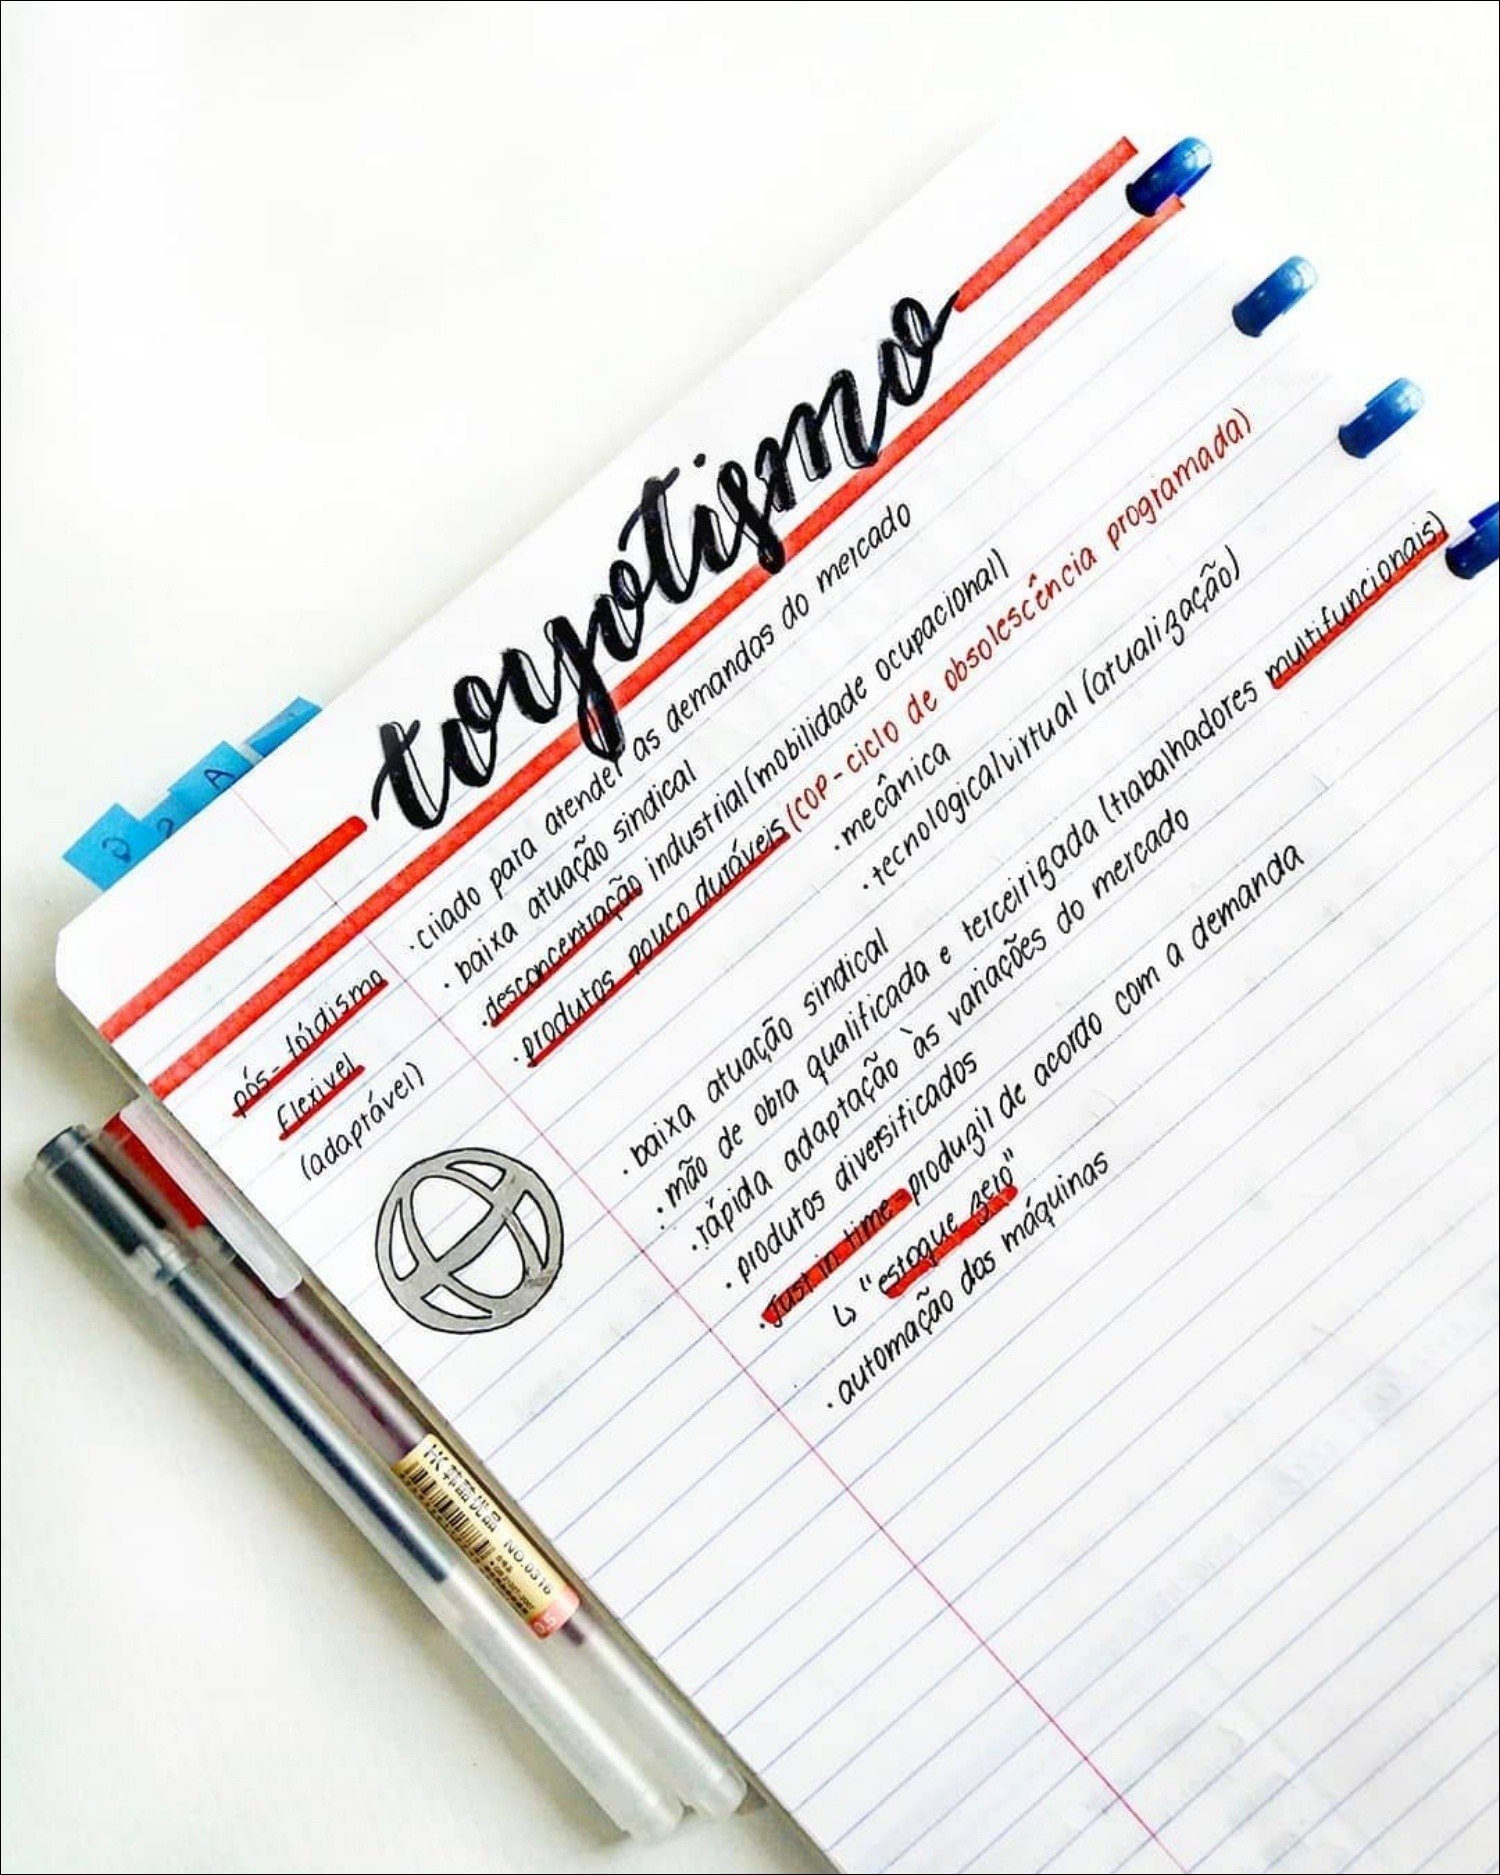 toyotismo
pós-fordismo
flexível
(adaptável)
·criado para atender as demandas do mercado
·baixa atuação sindical
·desconcentração industrial (mobilidade ocupacional)
·produtos pouco duráveis (COP-ciclo de obsolescência programada)
·mecânica
·tecnológica/virtual (atualização)
·baixa atuação sindical
·mão de obra qualificada e terceirizada (trabalhadores multifuncionais)
·rápida adaptação às variações do mercado
·produtos diversificados
·Just in time-produzir de acordo com a demanda
↳ "estoque zero"
·automação das máquinas
A
NO.0316
0.5